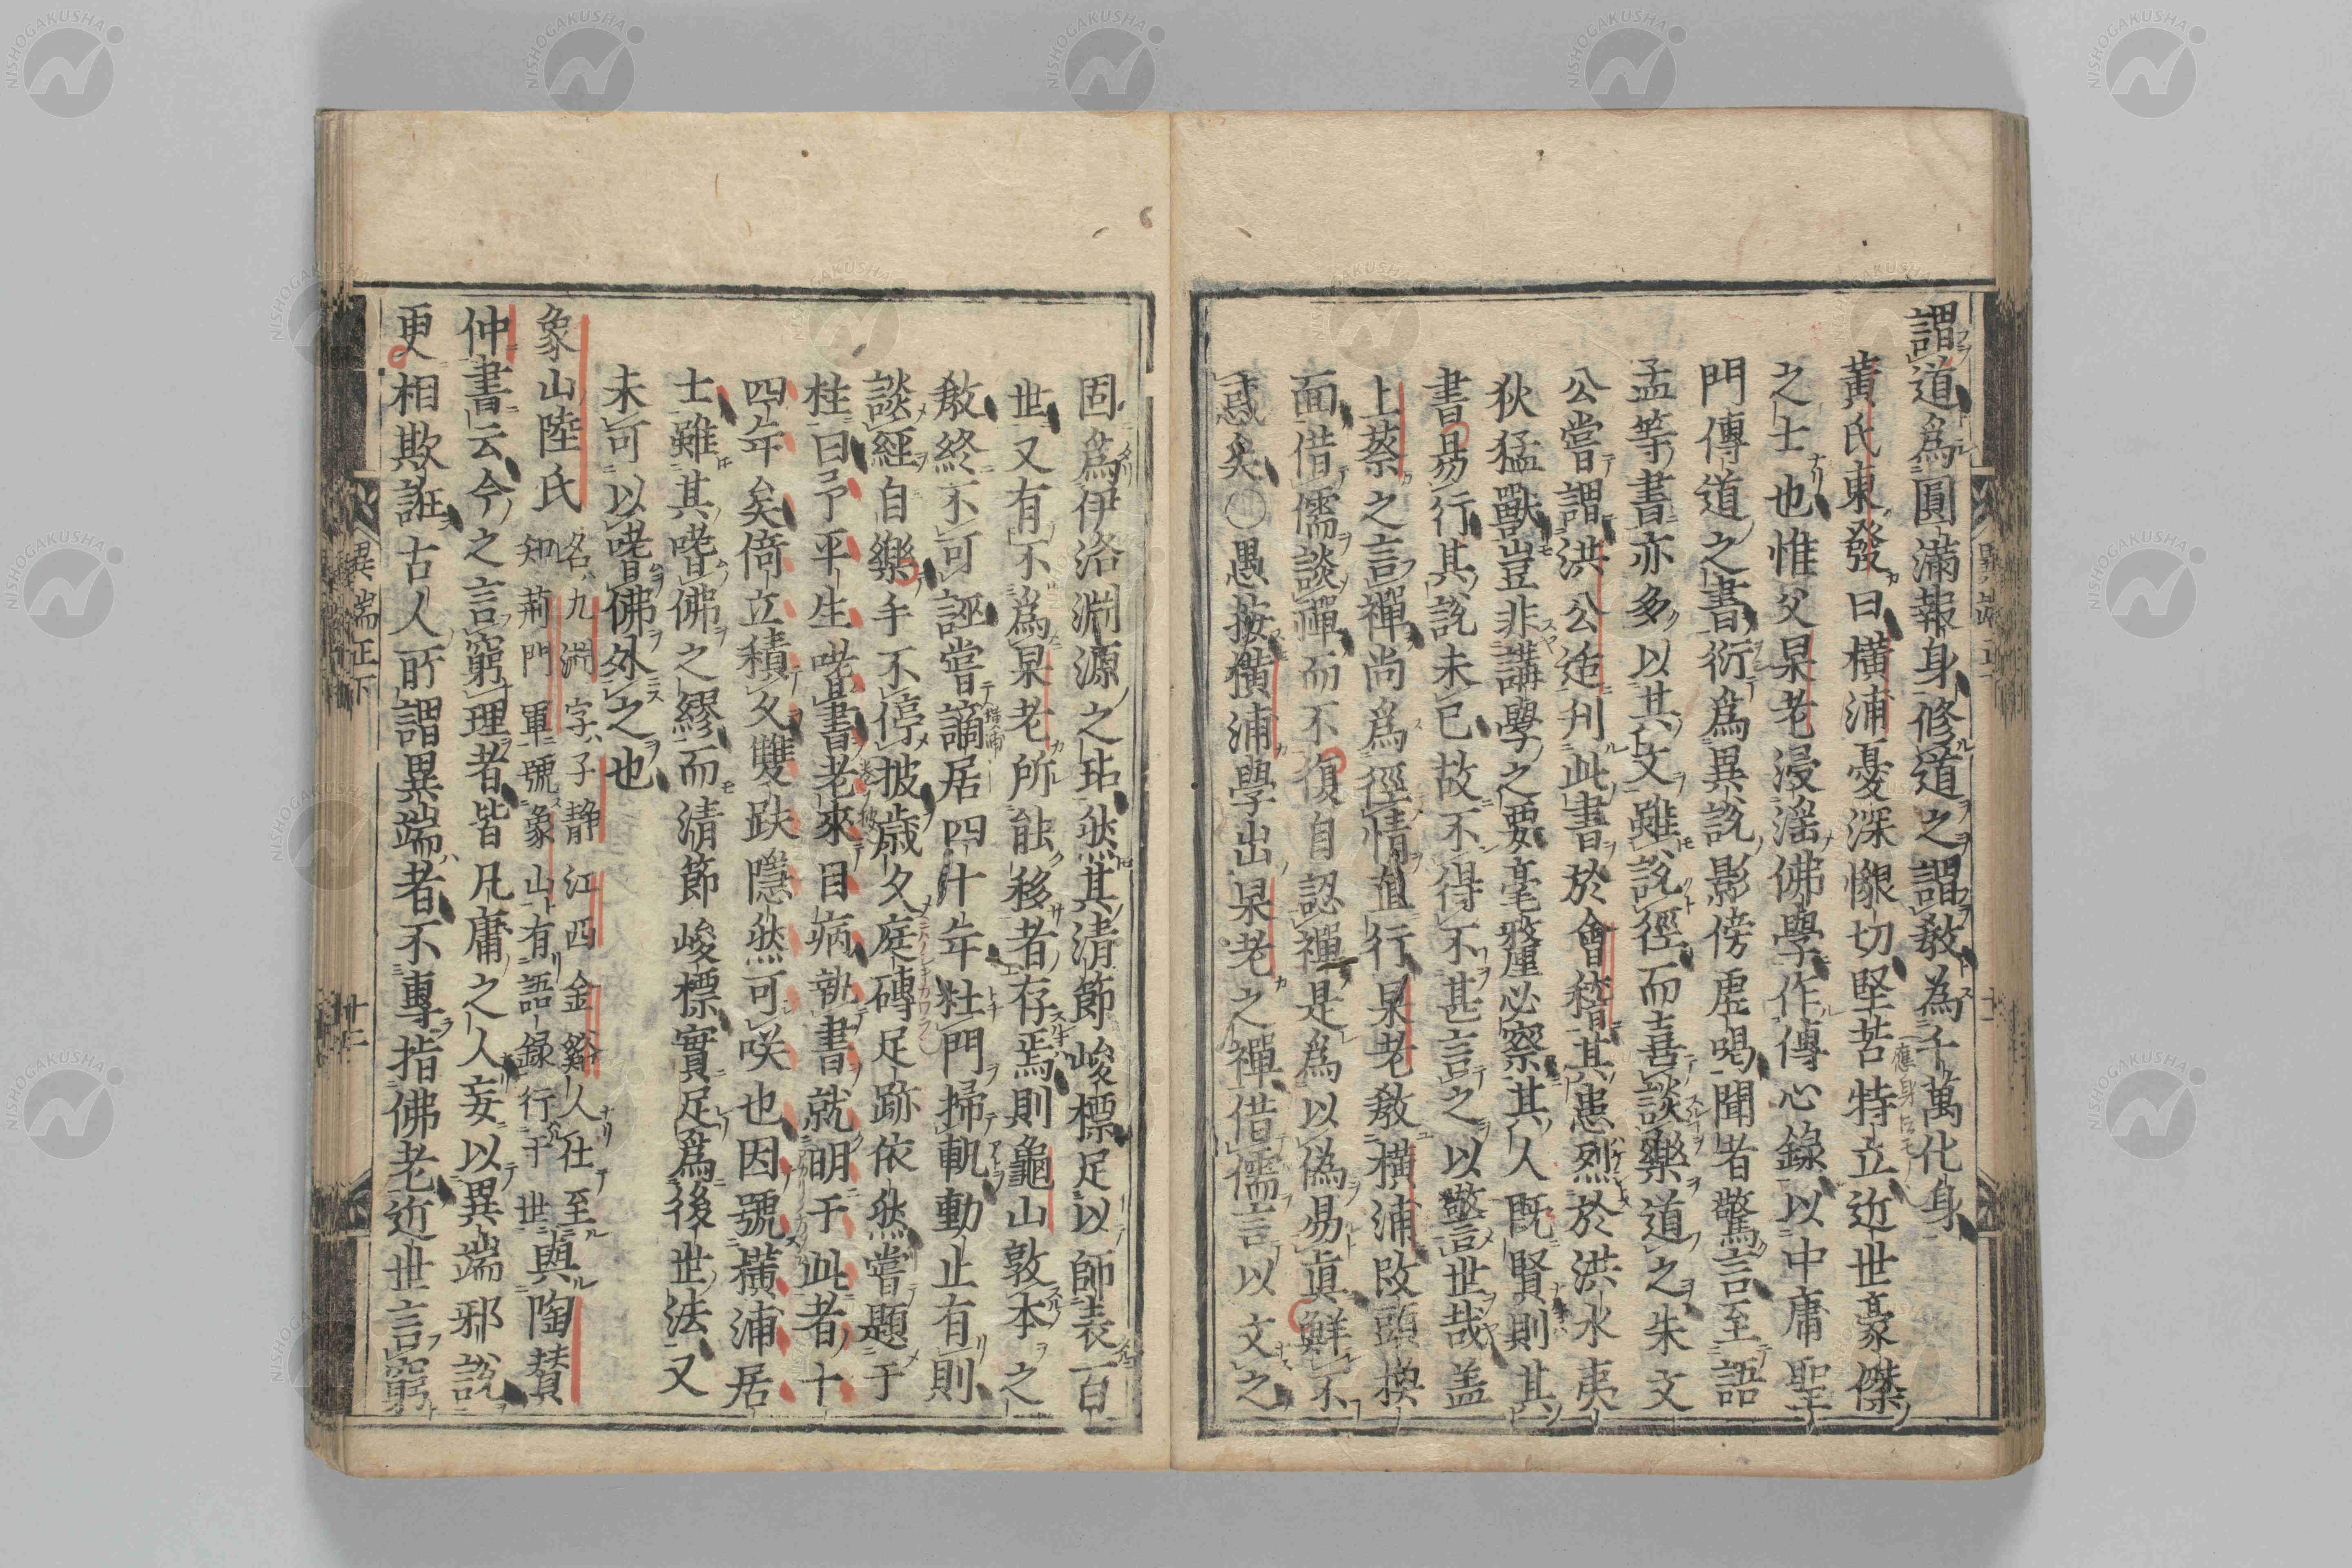 謂道為圓滿報身修道之謂敎為千萬化身
黃氏東發曰橫浦憂深懇切堅苦特立近世豪傑
之士也惟父杲老浸淫佛學作傳心錄以中庸聖
門傳道之書衍爲異說影傍虛喝聞者驚言至語
孟等書亦多以其文雖說徑而喜談樂道之朱文
公嘗謂洪公适刋此書於會稽其患烈於洪水夷
狄猛獸豈非講學之要毫釐必察其人既賢則其
書易行其說未已故不得不甚言之以警世哉盖
上蔡之言禪尚爲徑情直行杲老敎橫浦改頭換
面借儒談禪而不復自認禪是爲以偽易眞鮮不
惑矣○愚按橫浦學出杲老之禪借儒言以文之
固爲伊洛淵源之玷然其清節峻標足以師表百
世又有不爲杲老所能移者存焉則龜山敦本之
敎終不可誣嘗謫居四十年杜門掃軌動止有則
談經自樂手不停披歲久庭磚足跡依然嘗題于
柱曰予平生嗜書老來目病執書就明于此者十
四年矣倚立積久雙趺隱然可咲也因號橫浦居
士雖其嗜佛之繆而清節峻標實足爲後世法又
未可以嗜佛外之也
象山陸氏 名九淵字子靜江西金谿人仕至
知荊門軍號象山有語錄行于世 與陶賛
仲書云今之言窮理者皆凡庸之人妄以異端邪說
更相欺誑古人所謂異端者不專指佛老近世言窮
異端正下
十二
NISHOGAKUSHA